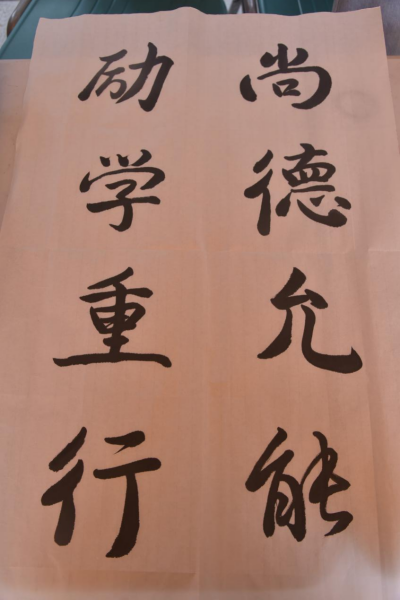 尚德允能
励学重行